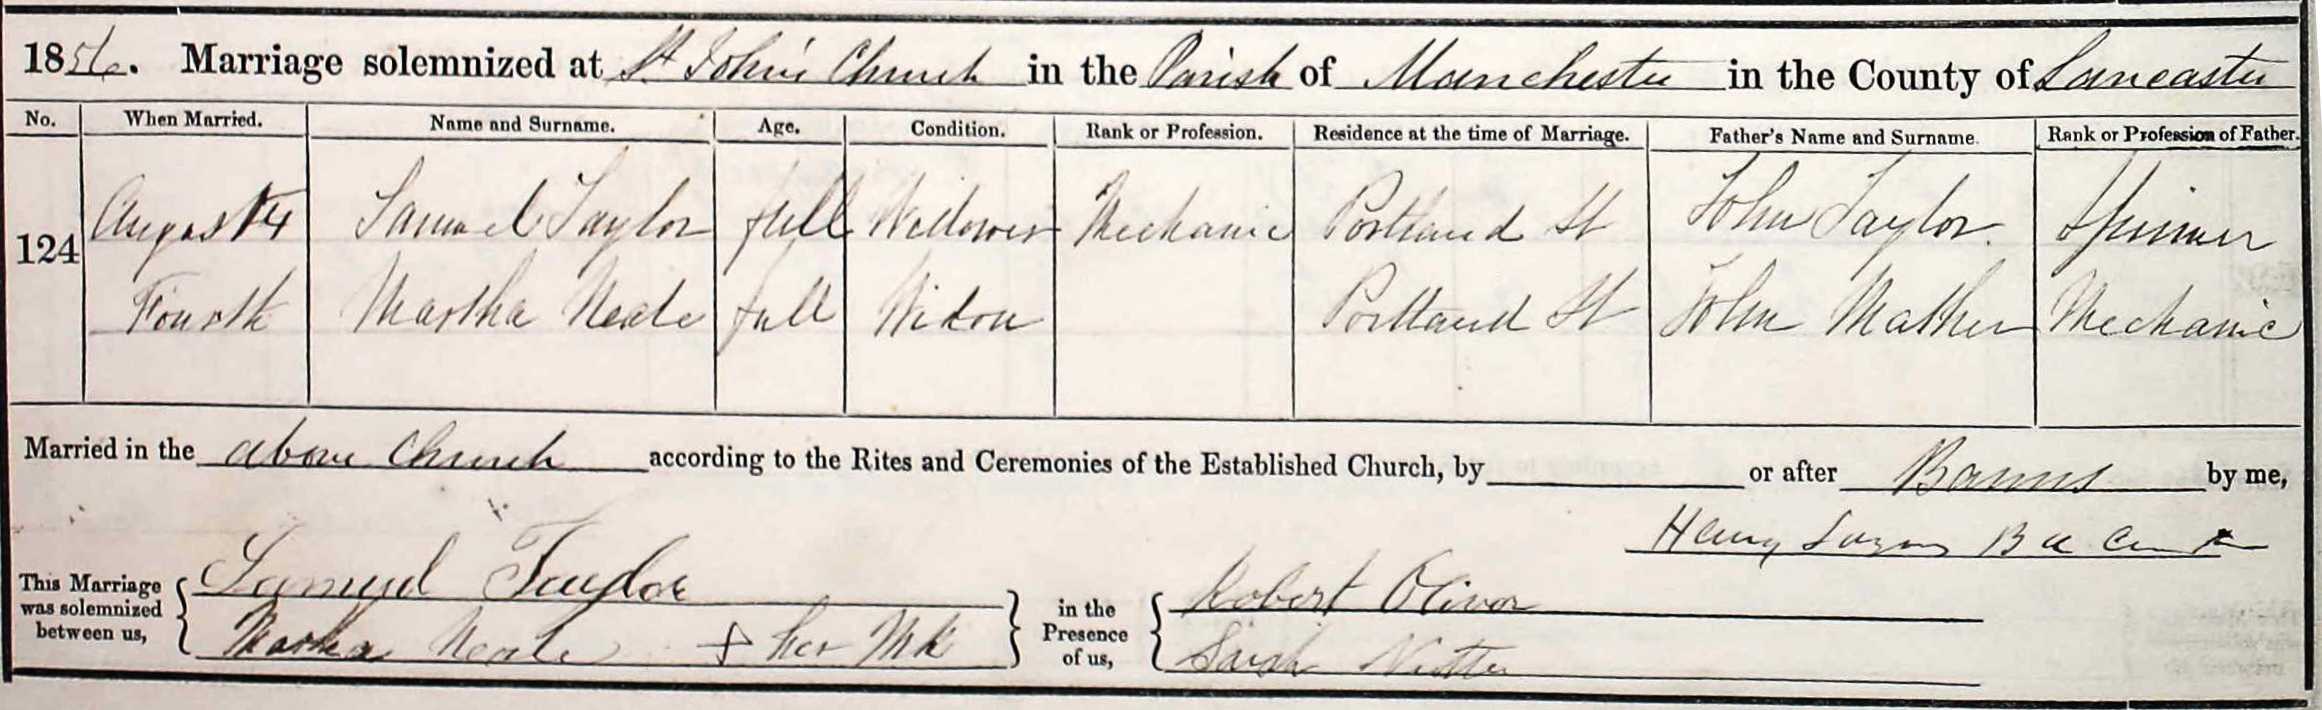 1856. Marriage solemnized at St John's Church in the Parish of Manchester in the County of Lancaster
No. When Married. Name and Surname. Age. Condition. Rank or Profession. Residence at the time of Marriage. Father's Name and Surname. Rank or Profession of Father.
124 August Samuel Taylor full Widower Mechanic Portland St John Taylor. Spinner
Fourth Martha Neale full Widow Portland St John Mather Mechanic
Married in the above Church according to the Rites and Ceremonies of the Established Church, by or after Banns by me,
Henry
This Marriage was solemnized between us, { Samuel Taylor } in the Presence of us, { Robert Oliver
Martha Neale + her Mk Sarah